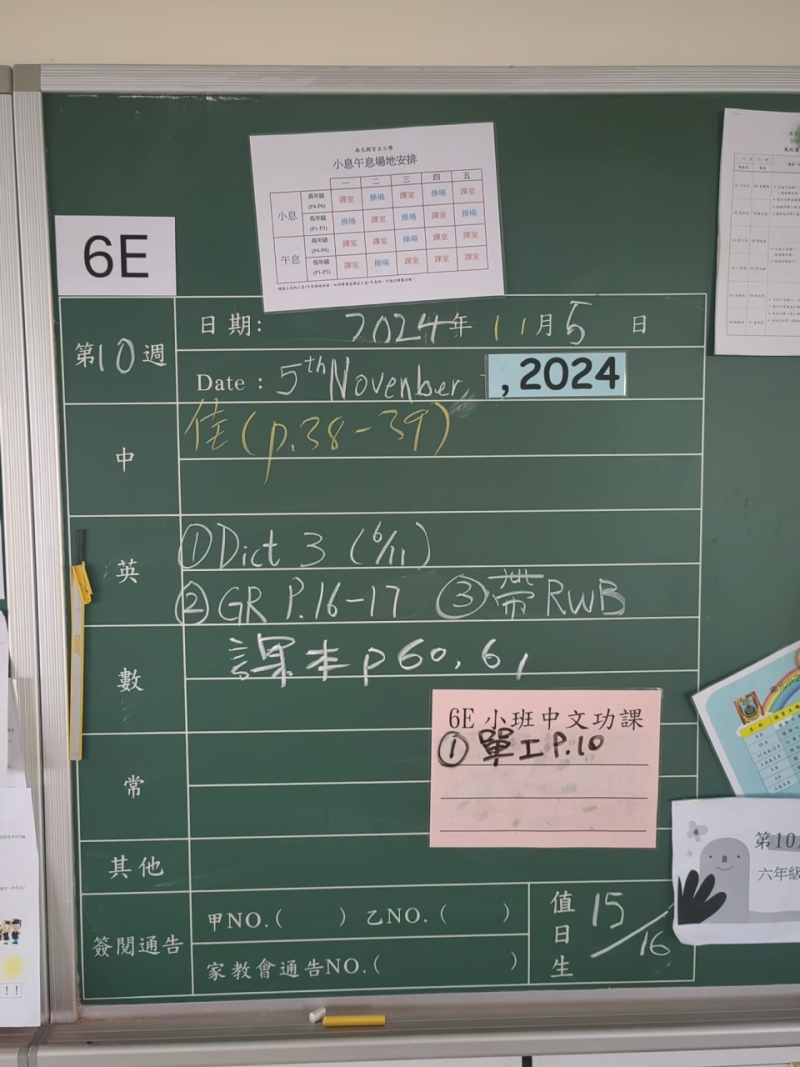 小息午息場地安排
一 二 三 四 五
小息 高年級 (P4-P6) 課室 操場 課室 操場 課室
低年級 (P1-P3) 操場 課室 操場 課室 操場
午息 高年級 (P4-P6) 課室 課室 操場 課室 課室
低年級 (P1-P3) 課室 操場 課室 課室 課室
6E
第10週
日期: 2024年 11月5 日
Date : 5th Novenber , 2024
中
佳(p.38-39)
英
①Dict 3 (6/11)
②GR P.16-17 ③帶RWB
數
課本p60,61
6E 小班中文功課
①單工P.10
常
其他
簽閱通告
甲NO.( ) 乙NO.( )
家教會通告NO.( )
值日生
15/16
第10
六年級